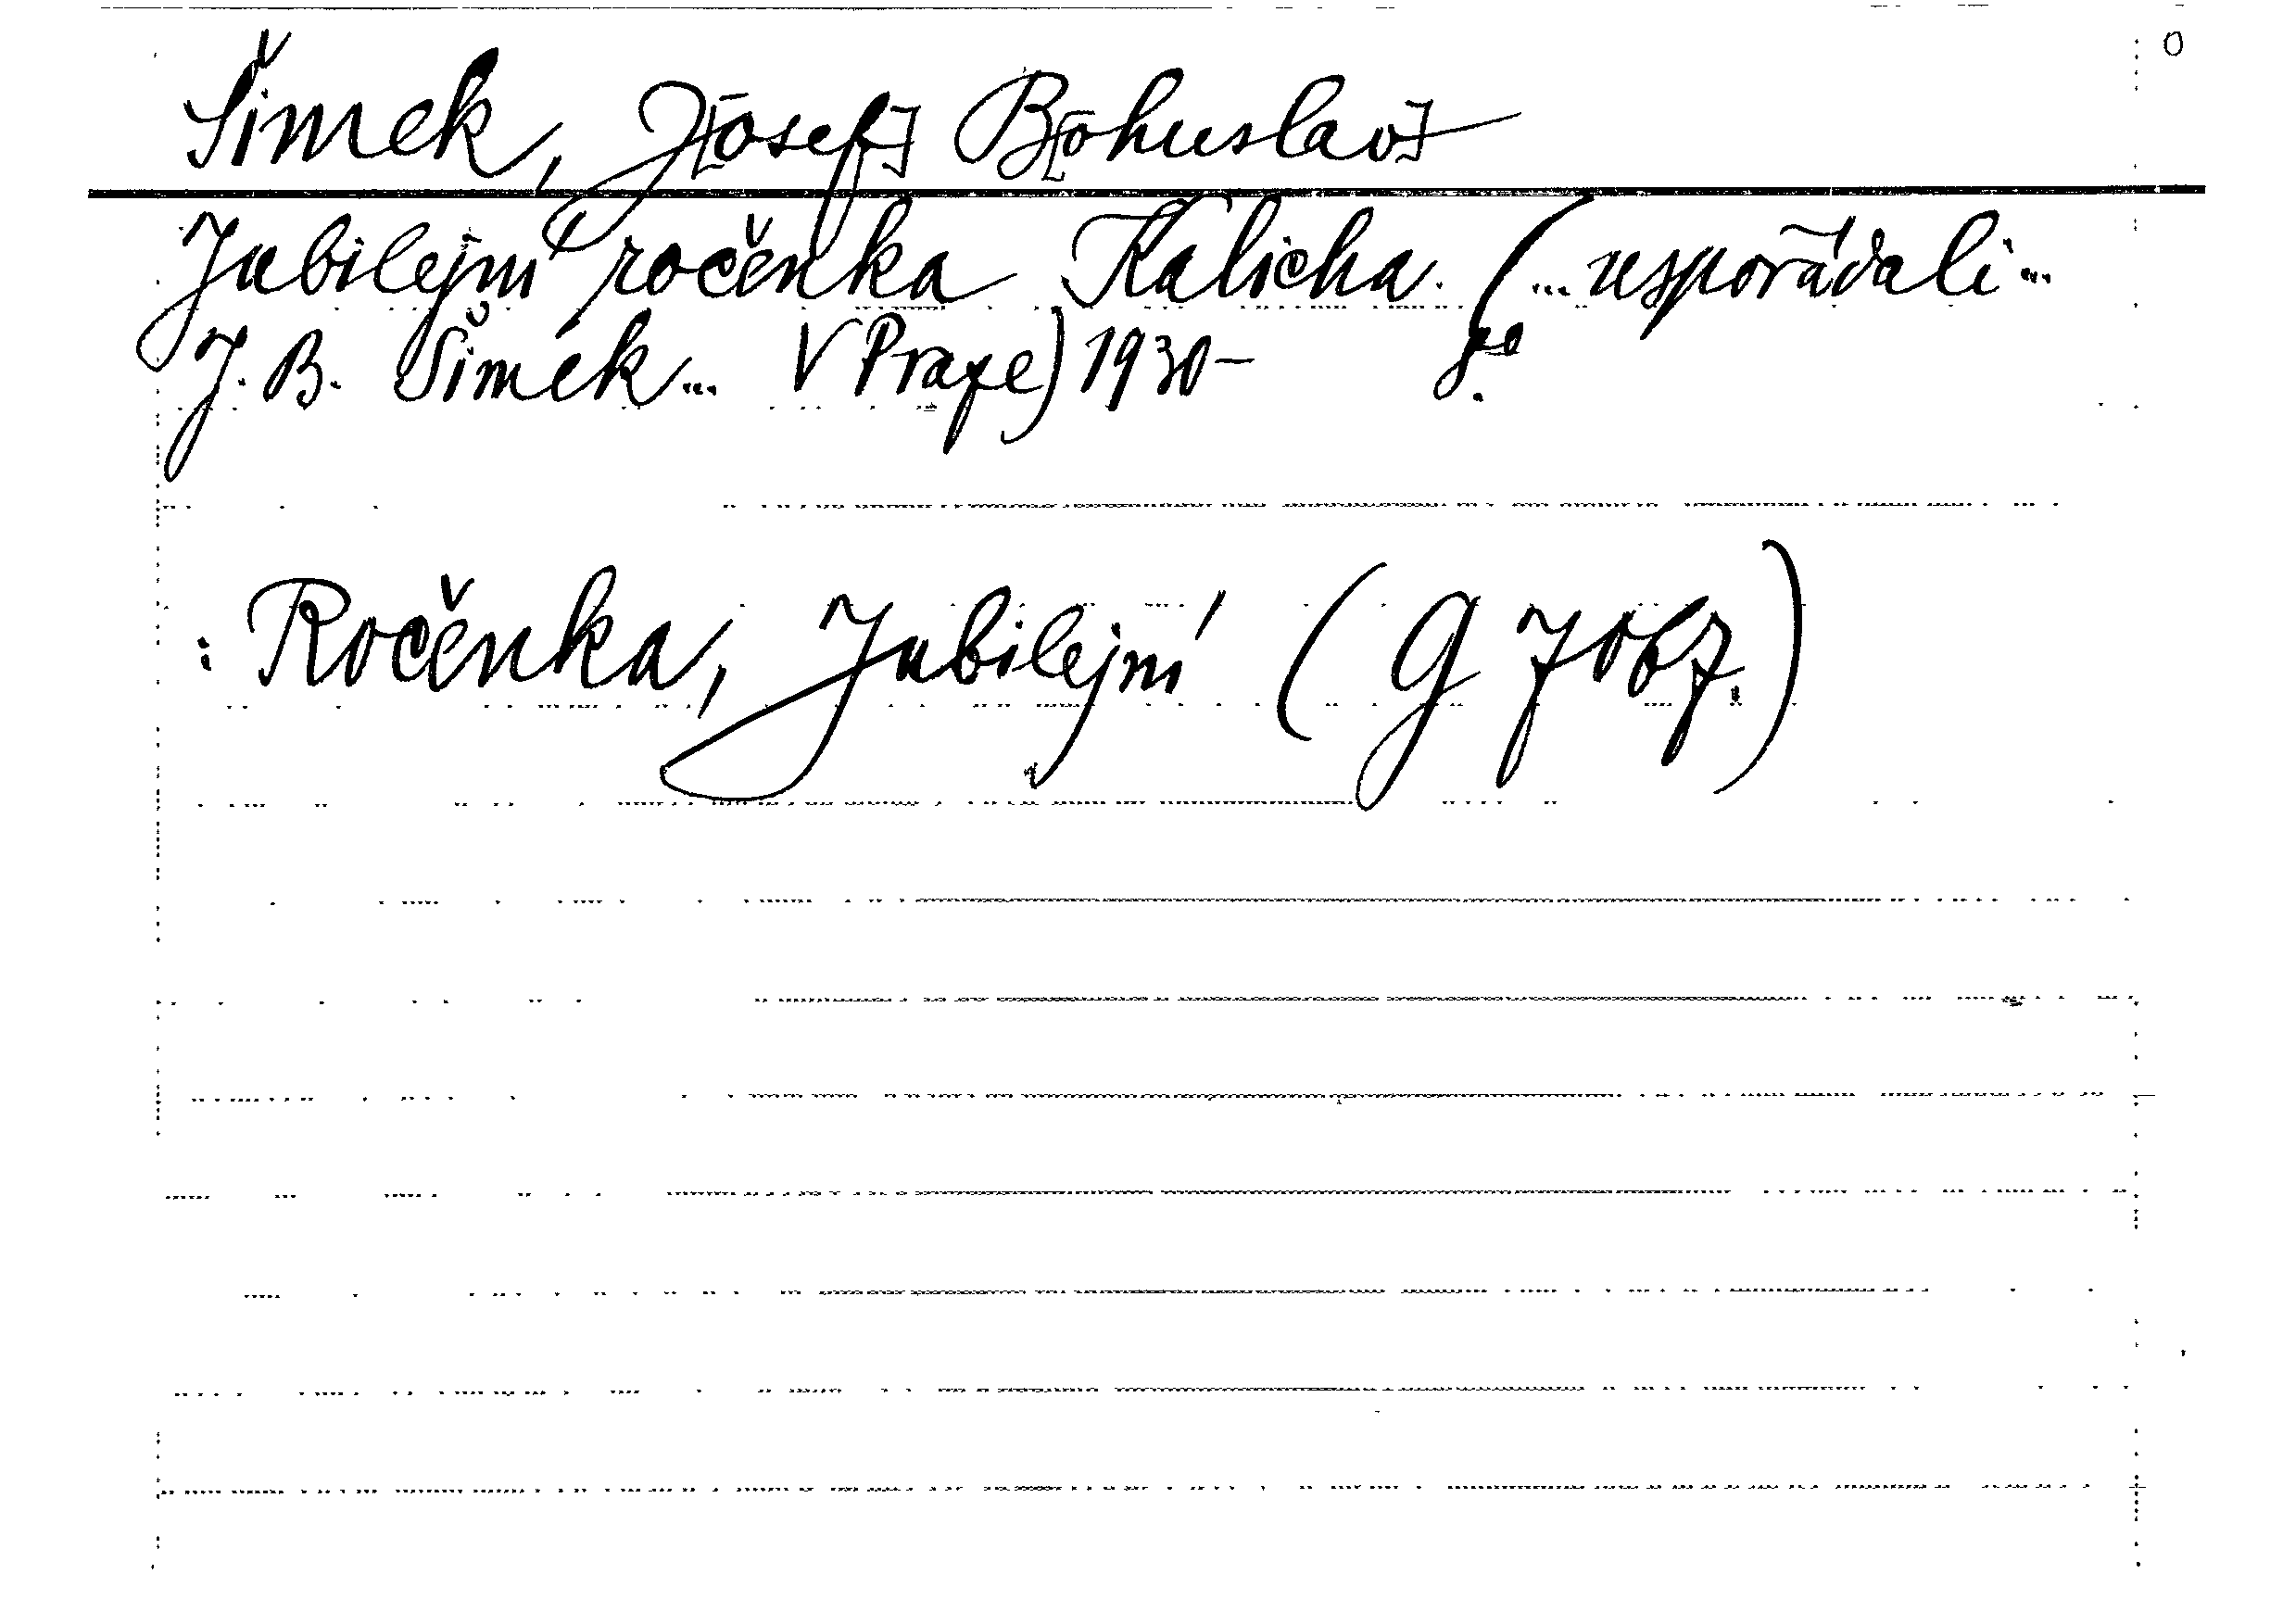 0
Šimek, J[osef] B[ohuslav]
Jubilejní ročenka Kalicha. (... uspořádali ...
J. B. Šimek... V Praze) 1930– 8°.
: Ročenka, Jubilejní (G 7067.)